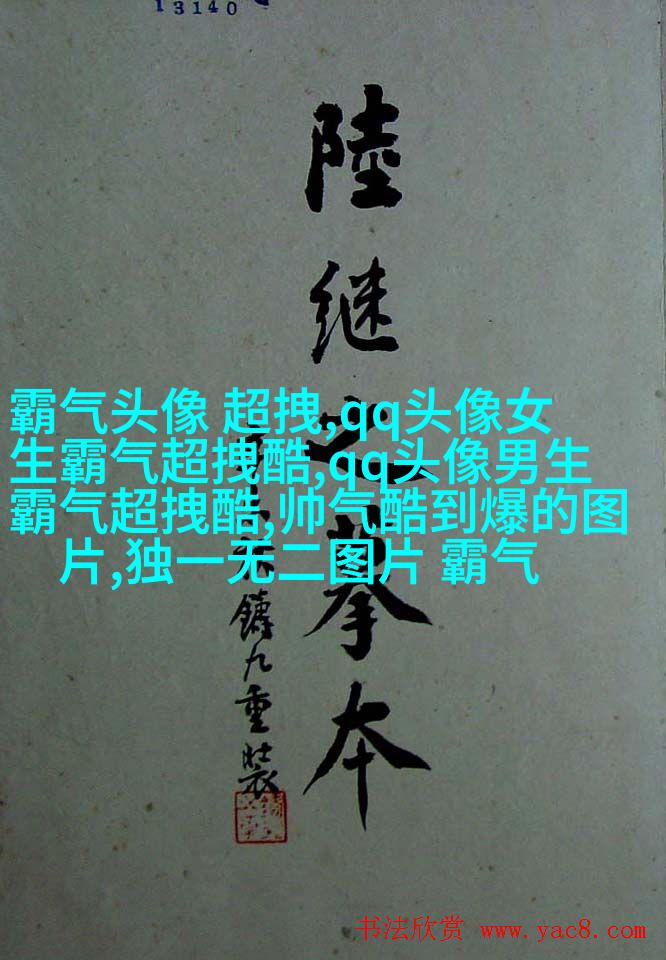 13140
陸继之摹本
霸气头像 超拽,qq头像女
生霸气超拽酷,qq头像男生
霸气超拽酷,帅气酷到爆的图
片,独一无二图片 霸气
鑄九重装
书法欣赏 www.yac8.com